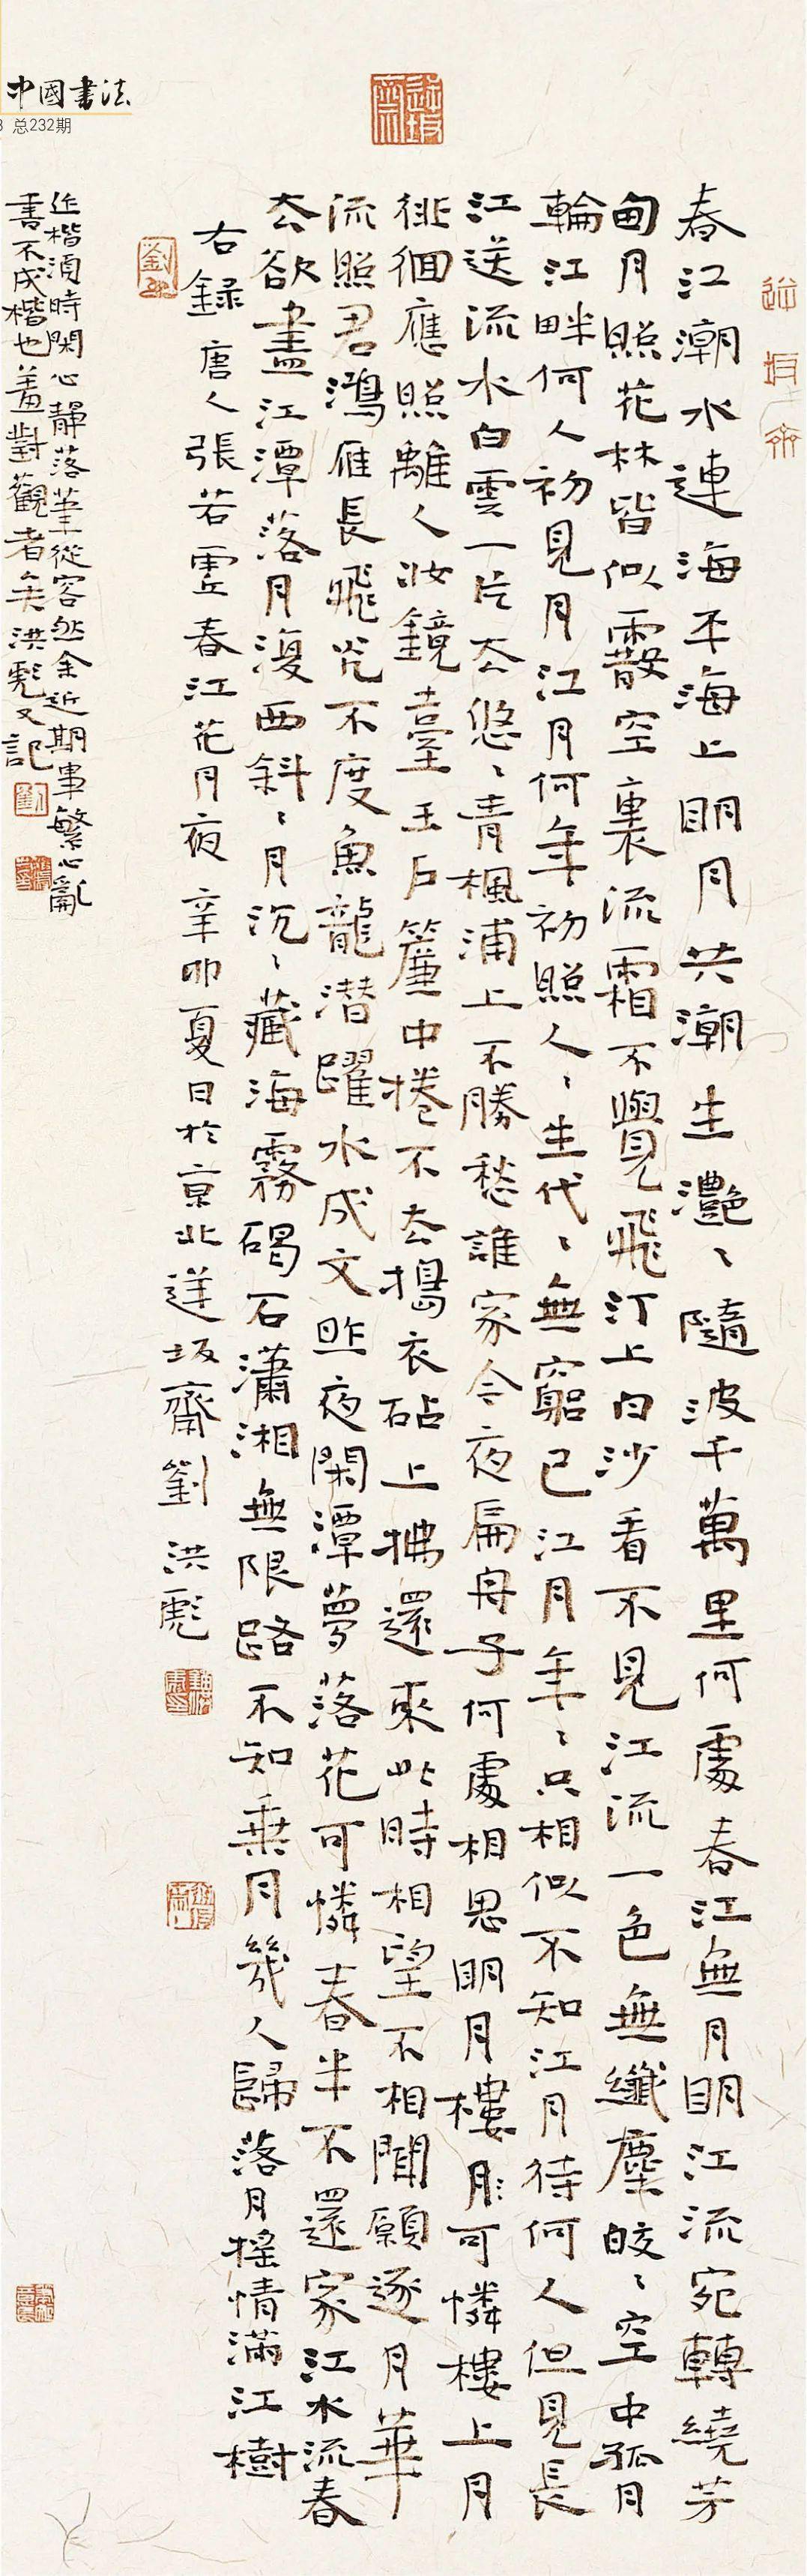 中國書法
总232期
春江潮水連海平海上明月共潮生灩〻隨波千萬里何處春江無月明江流宛轉繞芳
甸月照花林皆似霰空裏流霜不覺飛汀上白沙看不見江流一色無纖塵皎〻空中孤月
輪江畔何人初見月江月何年初照人〻生代〻無窮已江月年〻只相似不知江月待何人但見長
江送流水白雲一片去悠〻青楓浦上不勝愁誰家今夜扁舟子何處相思明月樓月可憐樓上月
徘徊應照離人妝鏡臺玉戶簾中捲不去搗衣砧上拂還來此時相望不相聞願逐月華
流照君鴻雁長飛光不度魚龍潛躍水成文昨夜閑潭夢落花可憐春半不還家江水流春
去欲盡江潭落月復西斜〻月沉〻藏海霧碣石瀟湘無限路不知乘月幾人歸落月搖情滿江樹
右錄唐人張若虛春江花月夜辛卯夏日於京北逆坂齋劉洪彪
楷須時閑心靜落筆從容然余近期事繁心亂
書不成楷也羞對觀者矣洪彪又記